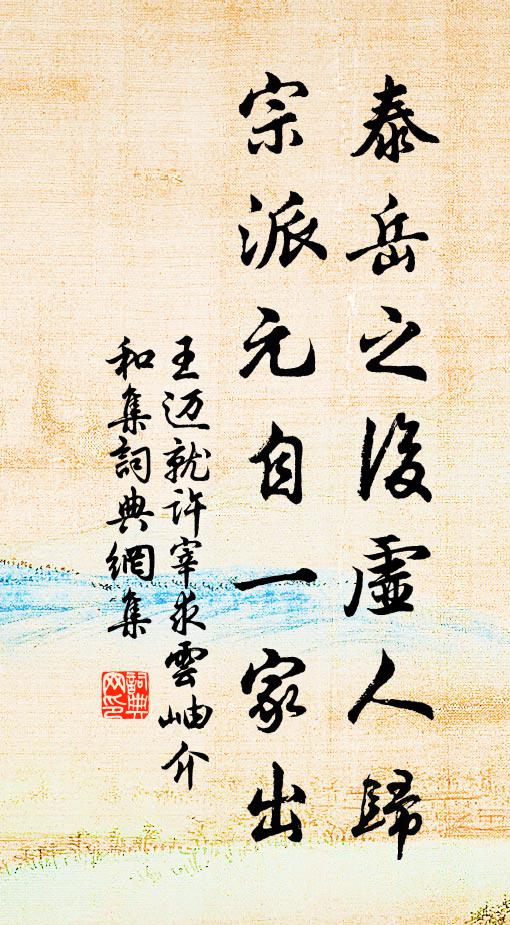 泰岳之後虛人歸
宗派元自一家出
王迈就许宰求雲岫介
和集詞典網集
詞典
网印